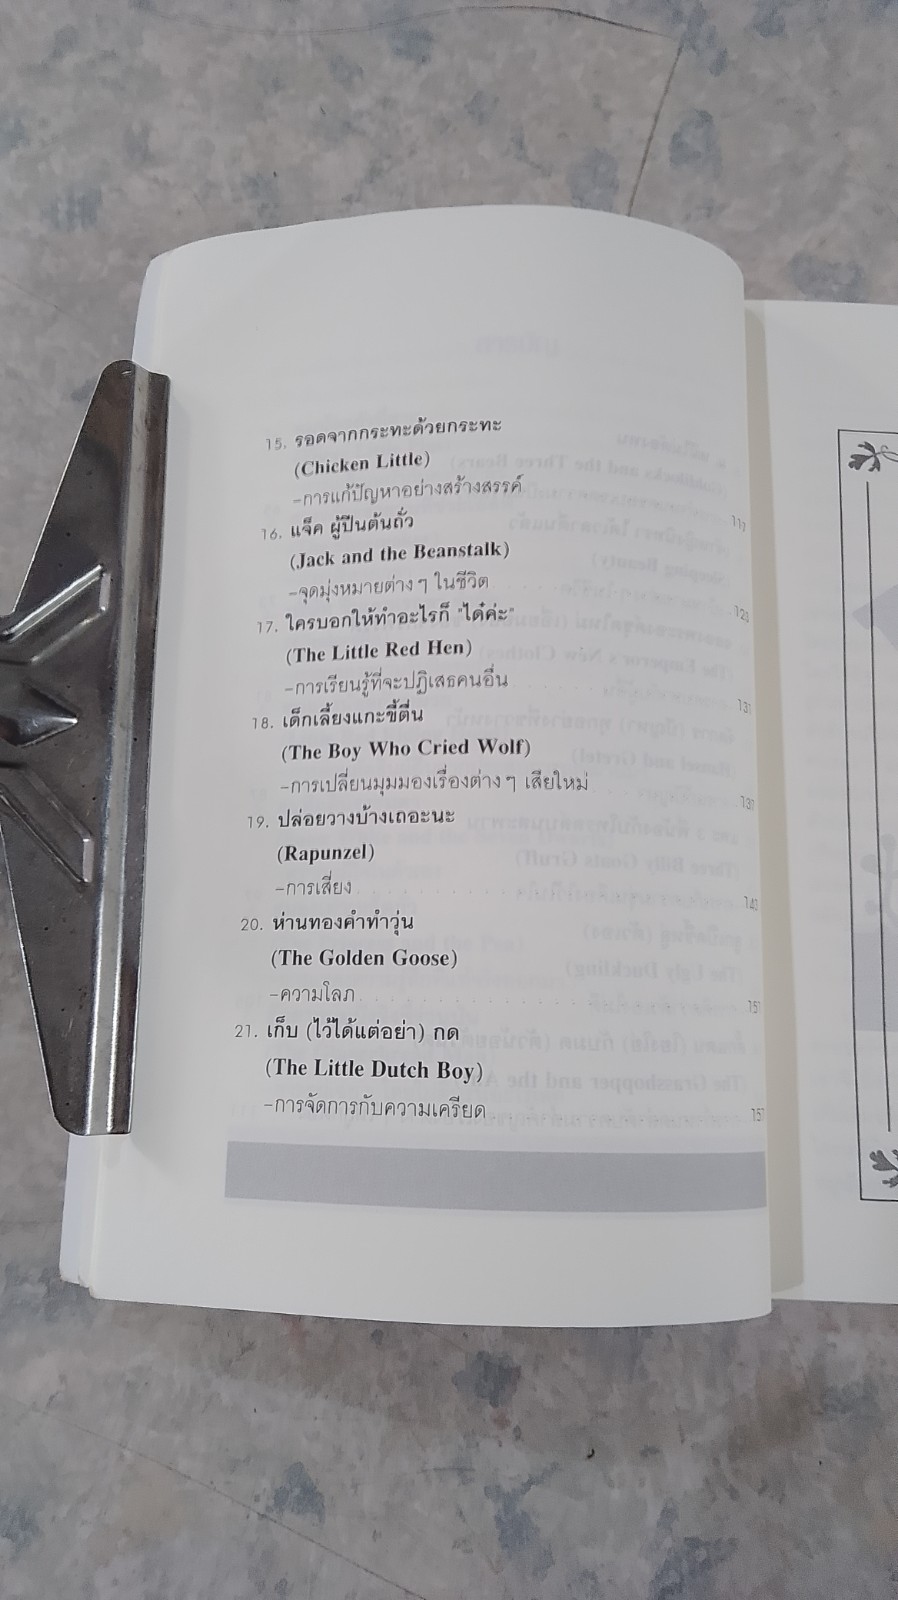 15. รอดจากกระทะด้วยกระทะ
(Chicken Little)
-การแก้ปัญหาอย่างสร้างสรรค์
16. แจ็ค ผู้ปีนต้นถั่ว
(Jack and the Beanstalk)
-จุดมุ่งหมายต่างๆ ในชีวิต
17. ใครบอกให้ทำอะไรก็ "ได้ค่ะ"
(The Little Red Hen)
-การเรียนรู้ที่จะปฏิเสธคนอื่น 131
18. เด็กเลี้ยงแกะขี้ตื่น
(The Boy Who Cried Wolf)
-การเปลี่ยนมุมมองเรื่องต่างๆ เสียใหม่
19. ปล่อยวางบ้างเถอะนะ
(Rapunzel)
-การเสี่ยง
20. ห่านทองคำทำวุ่น
(The Golden Goose)
-ความโลภ
21. เก็บ (ไว้ได้แต่อย่า) กด
(The Little Dutch Boy)
-การจัดการกับความเครียด